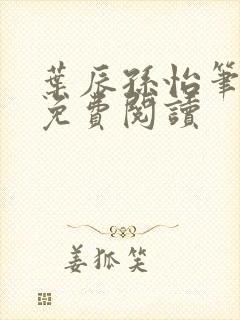 葉辰孫怡筆
免費閱讀
姜狐笑